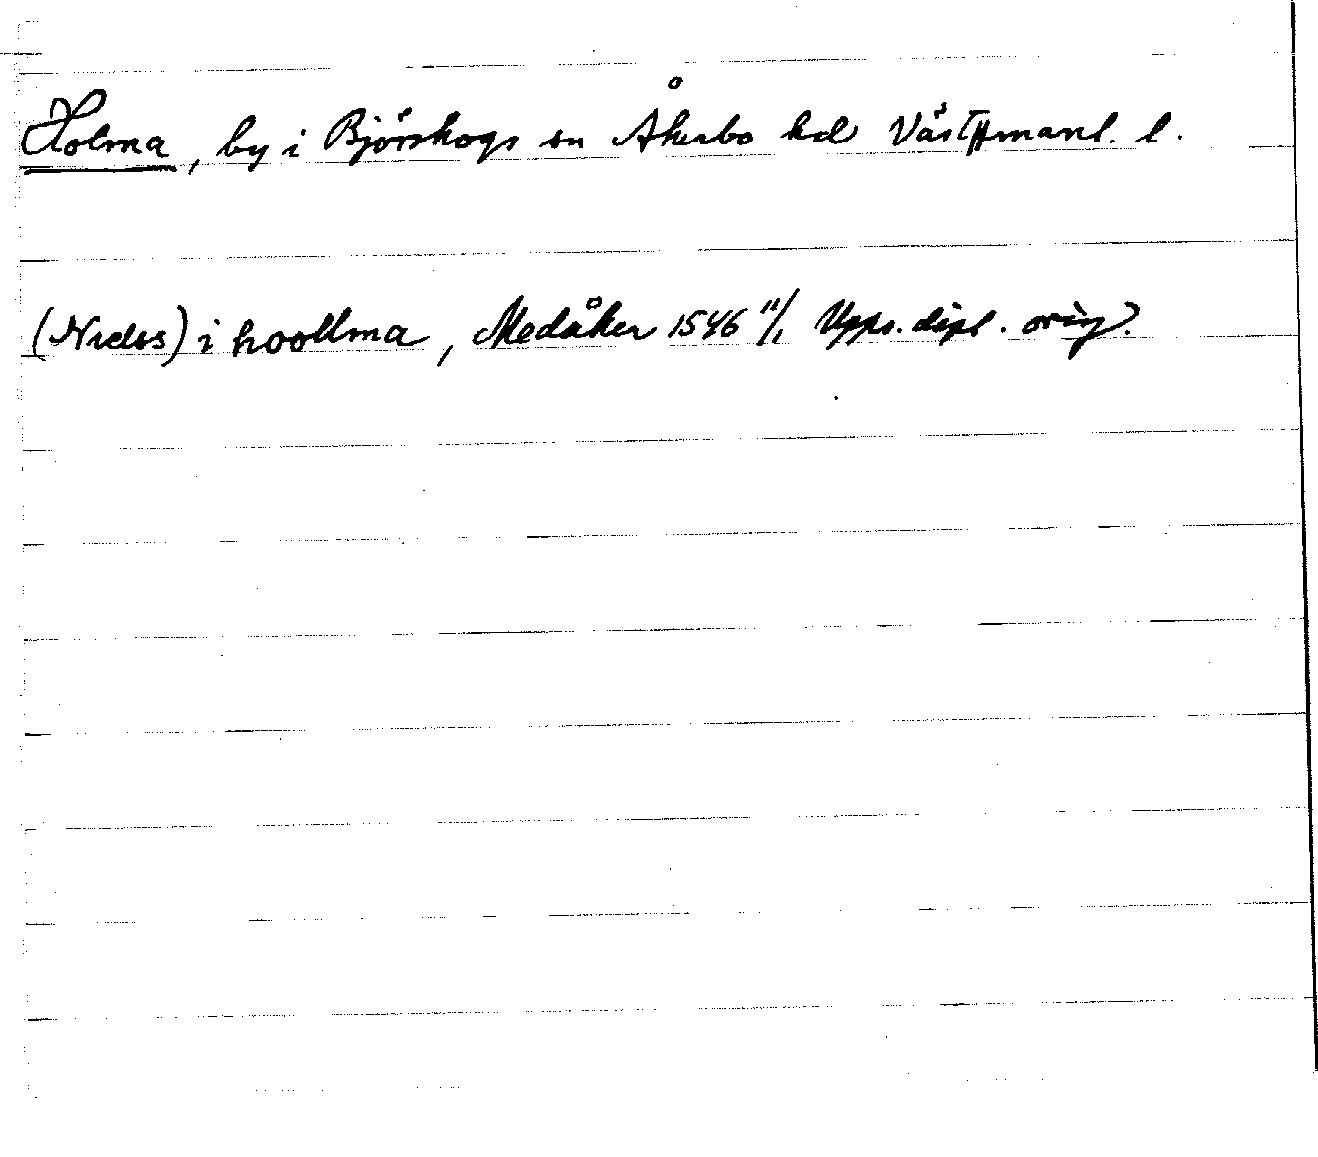 Holma, by i Björskogs sn Åkerbo hd Västmanl. l.
(Nielss) i hoollma, Medåker 1546 11/1 Upps. dipl. orig.